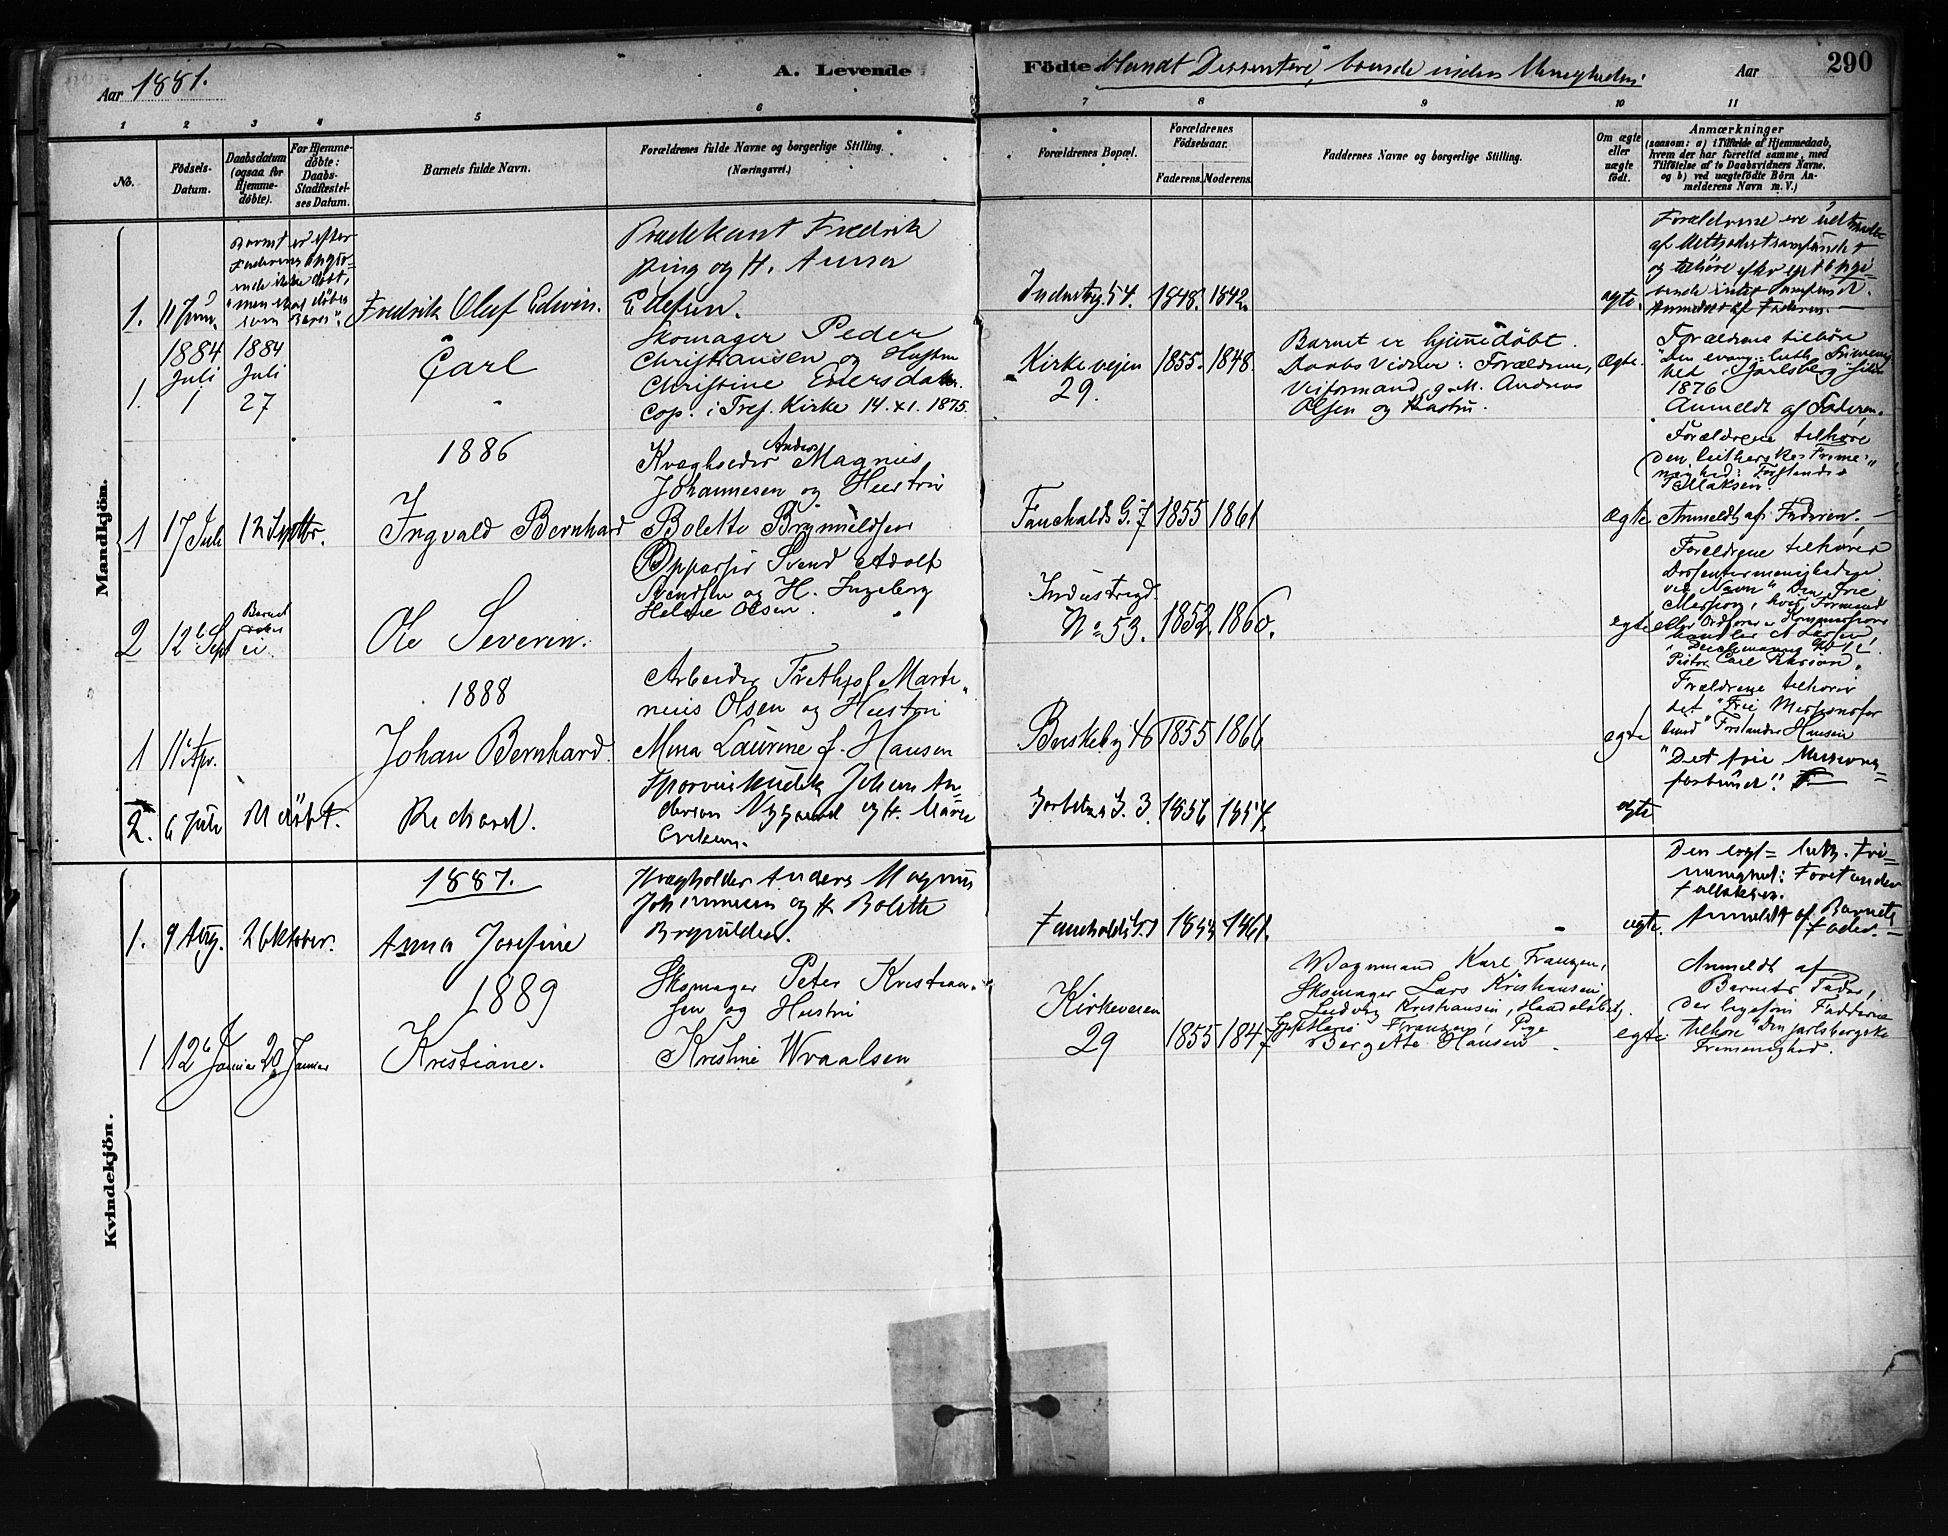 Aar 1881.
A. Levende
Födte blandt Dissentere, boende inden Menigheden.
Aar
290
1 2 3 4 5 6 7 8 9 10 11
No.
Födsels-
Datum.
Daabsdatum
(ogsaa for
Hjemme-
döbte).
For Hjemme-
döbte:
Daabs-
Stadfæstel-
ses Datum.
Barnets fulde Navn.
Forældrenes fulde Navne og borgerlige Stilling.
(Næringsvei.)
Forældrenes Bopæl.
Forældrenes
Födselsaar.
Faderens. Moderens.
Faddernes Navne og borgerlige Stilling.
Om ægte
eller
uægte
födt.
Anmærkninger
(saasom: a) i Tilfælde af Hjemmedaab,
hvem der har forrettet samme, med
Tilföielse af to Daabsvidners Navne.
og b) ved uægtefödte Börn An-
melderens Navn m. V.)
Mandkjön.
1. 11 Juni.
Barnet er efter
Faderens Opgiv-
ende ikke döbt,
men skal döbes
som
Fredrik Oluf Edwin.
Prædikant Fredrik
Ring og H. Anna
Ellefsen.
Industrig. 54. 1848. 1842.
ægte.
Forældrene ere udtraadte
af Methodistsamfundet
og tilhöre efter
intet Samfund.
Anmeldt af Faderen.
1884
Juli
1. 1
1884
Juli
27
Carl
Skomager Peder
Christiansen og Hustru
Christine
Cop. i Tref. Kirke 14. XI. 1875.
Kirkeveien
29.
1855. 1848.
Barnet er hjemmedöbt.
Daabs Vidner: Forældrene,
Andreas
Olsen og Hustru.
Ægte.
Forældrene tilhöre
"Den evang. luth. Frimenig-
hed i Jarlsberg" siden
1876
Anmeldt af Faderen.
1886
1 17 Juli 12 Septbr.
Ingvald Bernhard
Kvægholder Anders Magnus
Johannesen og Hustru
Bolette Brynildsen
Fauchalds G. 7 1855 1861
Ægte
Forældrene tilhøre
den lutherske Frime-
nighed: Forstander
Anmeldt af Faderen.
2 12 Sept
Barnet
ei.
Ole Severin.
Oppasser Svend Adolf
Svendsen og H. Ingeborg
Helene Olsen.
Industrigd.
No 53. 1852. 1860.
egte
Forældrene tilhører
Dissentermenigheden
ved Navn "Den Frie
Mission, hvis Formand
eller Ordfører er
1888
1 11 Apr.
Johan Bernhard.
Arbeider Frithjof Marti-
nius Olsen og Hustru
Mina Laurine f. Hansen
Buskeby 46 1855 1866
egte
Forældrene tilhører
det "Frie Missionsfor
bund" Forstander Hansen
2. 6 Juli Udöbt.
Richard.
Johan An-
dersen Nygaard og H. Maren
Eriksen.
1856 1857.
egte
"Det frie Missions-
forbund".
Kvindekjön.
1887.
1. 9 Aug. 2 Oktober.
Anna Josefine
Kvægholder Anders Magnus
Johannesen og H. Bolette
Brynildsen.
Fauchalds G. 7 1855 1861.
egte.
Den evgl. luth. Fri-
menighed: Forstander
Anmeldt af Barnets
Fader.
1889
1 12 Januar 20 Januar
Kristiane.
Skomager Peter Kristian-
sen og Hustru
Kristine Wraalsen
Kirkeveien
29 1855 1847
Karl Franzen,
Skomager Lars Kristiansen,
Ludvig Kristiansen,
Franzen, Pige
Bergette Hansen
egte.
Anmeldt af
Barnets Fader,
der ligesom Fadderne
tilhøre "Den jarlsbergske
Frimenighed.